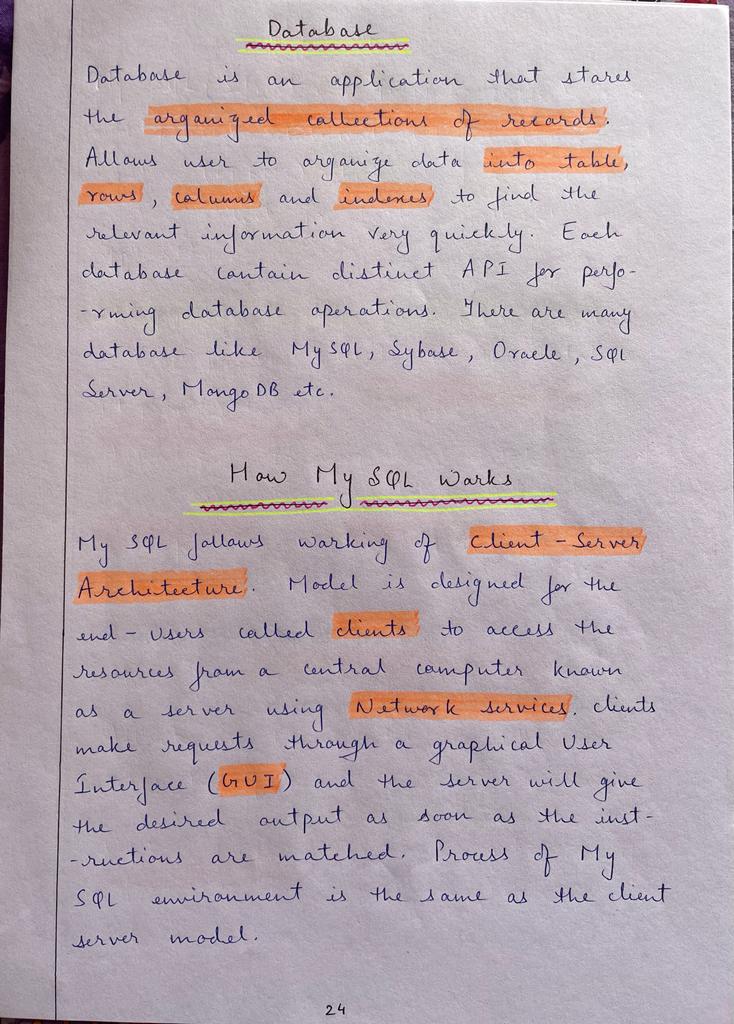 Database
Database is an application that stores
the organized collections of records.
Allows user to organize data into table,
rows, columns and indexes to find the
relevant information very quickly. Each
database contain distinct API for perfo-
-rming database operations. There are many
database like MySQL, Sybase, Oracle, SQL
Server, MongoDB etc.
How My SQL Works
My SQL follows working of Client-Server
Architecture. Model is designed for the
end-users called clients to access the
resources from a central computer known
as a server using Network services. clients
make requests through a graphical User
Interface (GUI) and the server will give
the desired output as soon as the inst-
-ructions are matched. Process of My
SQL environment is the same as the client
server model.
24